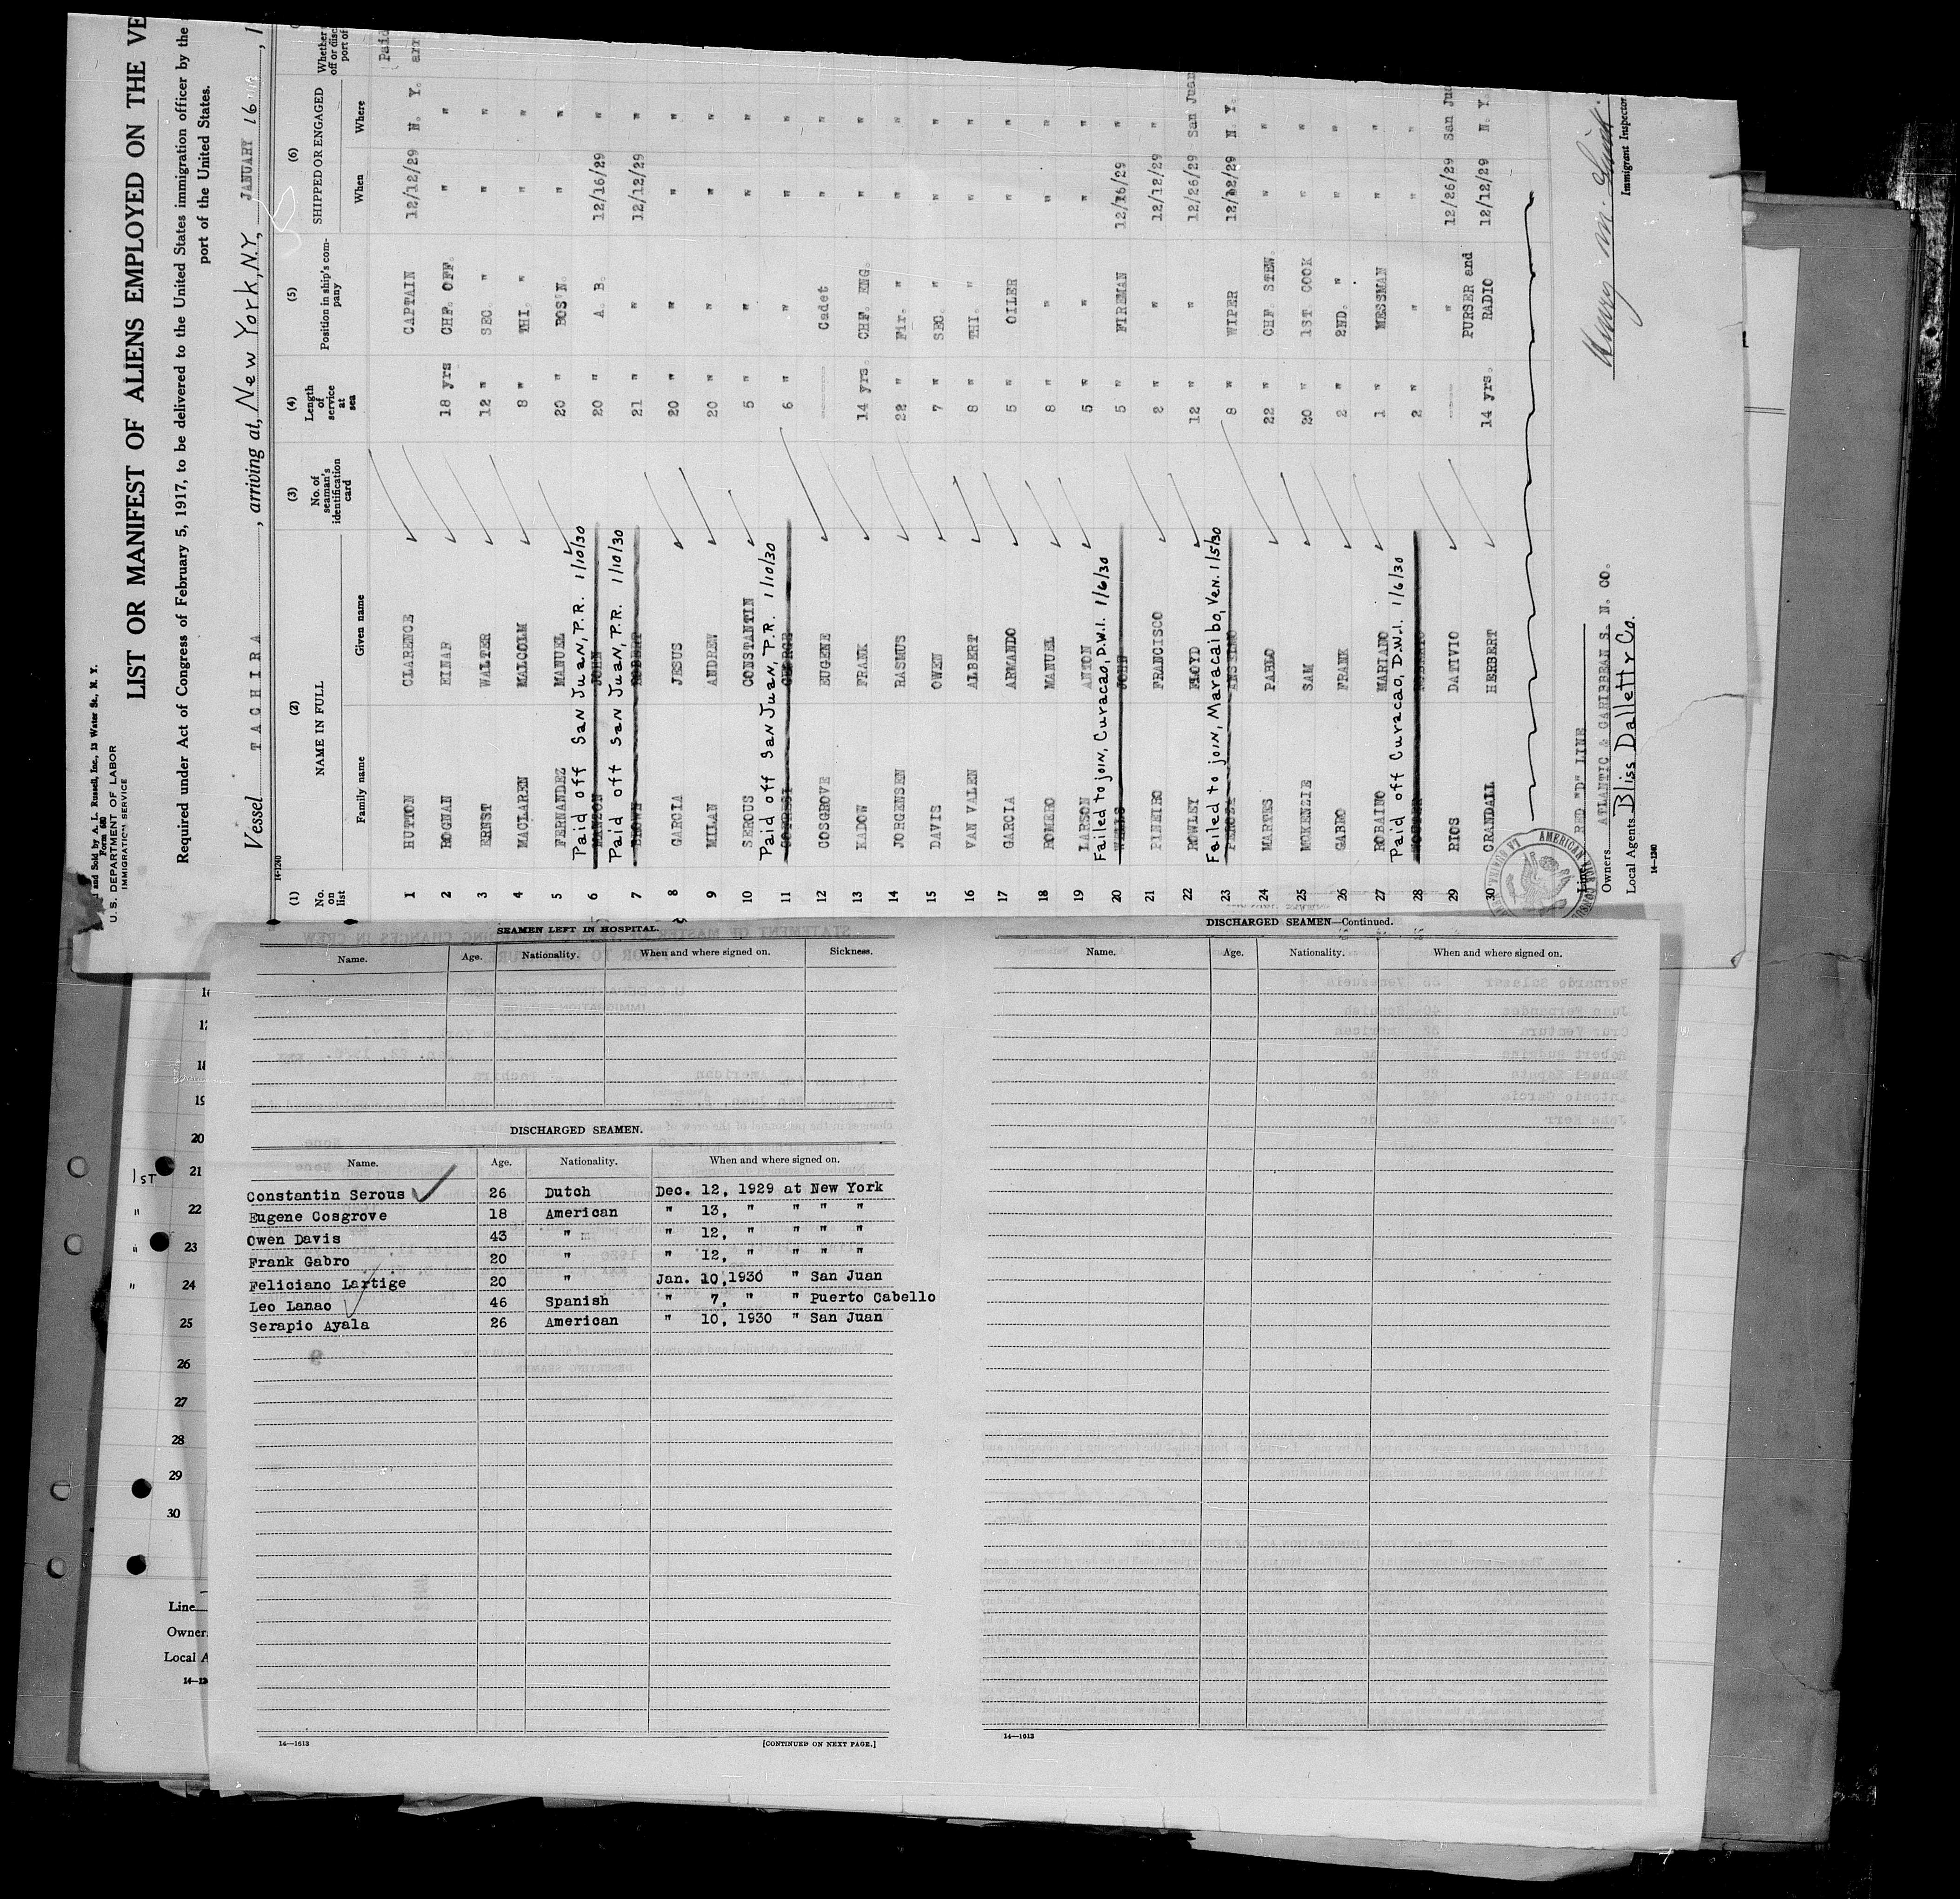 and sold by A. L. Russell, Inc., 13 Water St., N. Y.
Form 680
U. S. DEPARTMENT OF LABOR
IMMIGRATION SERVICE
LIST OR MANIFEST OF ALIENS EMPLOYED ON THE VE
Required under Act of Congress of February 5, 1917, to be delivered to the United States immigration officer by the
port of the United States.
Vessel TACHIRA, arriving at, New York, N.Y., JANUARY 16
14-1240
(1) (2) (3) (4) (5) (6)
No. on list NAME IN FULL No. of seaman's identification card Length of service at sea Position in ship's company SHIPPED OR ENGAGED Whether
off or disc
port of
Family name Given name When Where
Paid
arr
1 HUTTON CLARENCE CAPTAIN 12/12/29 N. Y.
2 ROGNAN EINAR 18 yrs CHF. OFF. " "
3 ERNST WALTER 12 " SEC. " " "
4 MACLAREN MALCOLM 8 " THI. " " "
5 FERNANDEZ MANUEL 20 " BOS'N. " "
Paid off San Juan, P.R. 1/10/30
6 MANZON JOHN 20 " A. B. 12/16/29 "
Paid off San Juan, P.R. 1/10/30
7 BROWN ROBERT 21 " " 12/12/29 "
8 GARCIA JESUS 20 " " " "
9 MILAN ANDREW 20 " " " "
10 SEROUS CONSTANTIN 5 " " " "
Paid off San Juan, P.R. 1/10/30
11 GEORGE 6 " " " "
12 COSGROVE EUGENE Cadet " "
13 KADOW FRANK 14 yrs. CHF. ENG. " "
14 JORGENSEN RASMUS 22 " Fir. " " "
15 DAVIS OWEN 7 " SEC. " " "
16 VAN VALEN ALBERT 8 " THI. " " "
17 GARCIA ARMANDO 5 " OILER " "
18 ROMERO MANUEL 8 " " " "
19 LARSON ANTON 5 " " " "
Failed to join, Curacao, D.W.I. 1/6/30
20 WELLS JOHN 5 " FIREMAN 12/16/29 "
21 PINEIRO FRANCISCO 2 " " 12/12/29 "
22 ROWLEY FLOYD 12 " " 12/26/29 San Juan
Failed to join, Maracaibo, Ven. 1/5/30
23 8 " WIPER 12/12/29 N. Y.
24 MARTES PABLO 22 " CHF. STEW. " "
25 MCKENZIE SAM 20 " 1ST COOK " "
26 GABRO FRANK 2 " 2ND. " " "
27 ROBAINO MARIANO 1 " MESSMAN " "
Paid off Curacao, D.W.I. 1/6/30
28 2 " " " "
29 RIOS DATIVIO " 12/26/29 San Jua
30 CRANDALL HERBERT 14 yrs. PURSER and RADIO 12/12/29 N. Y.
Line RED "D" LINE
Owners ATLANTIC & CARIBBEAN S. N. CO.
Local Agents Bliss Dallett & Co.
Immigrant Inspector
14-1240
SEAMEN LEFT IN HOSPITAL.
Name. Age. Nationality. When and where signed on. Sickness.
DISCHARGED SEAMEN.
Name. Age. Nationality. When and where signed on.
Constantin Serous 26 Dutch Dec. 12, 1929 at New York
Eugene Cosgrove 18 American " 13, " " " "
Owen Davis 43 " " 12, " " " "
Frank Gabro 20 " " 12, " " " "
Feliciano Lartige 20 " Jan. 10, 1930 " San Juan
Leo Lanao 46 Spanish " 7, " " Puerto Cabello
Serapio Ayala 26 American " 10, 1930 " San Juan
14—1613
[CONTINUED ON NEXT PAGE.]
DISCHARGED SEAMEN—Continued.
Name. Age. Nationality. When and where signed on.
14—1613
18
19
20
1ST 21
" 22
" 23
" 24
25
26
27
28
29
30
Line
Owner
Local A